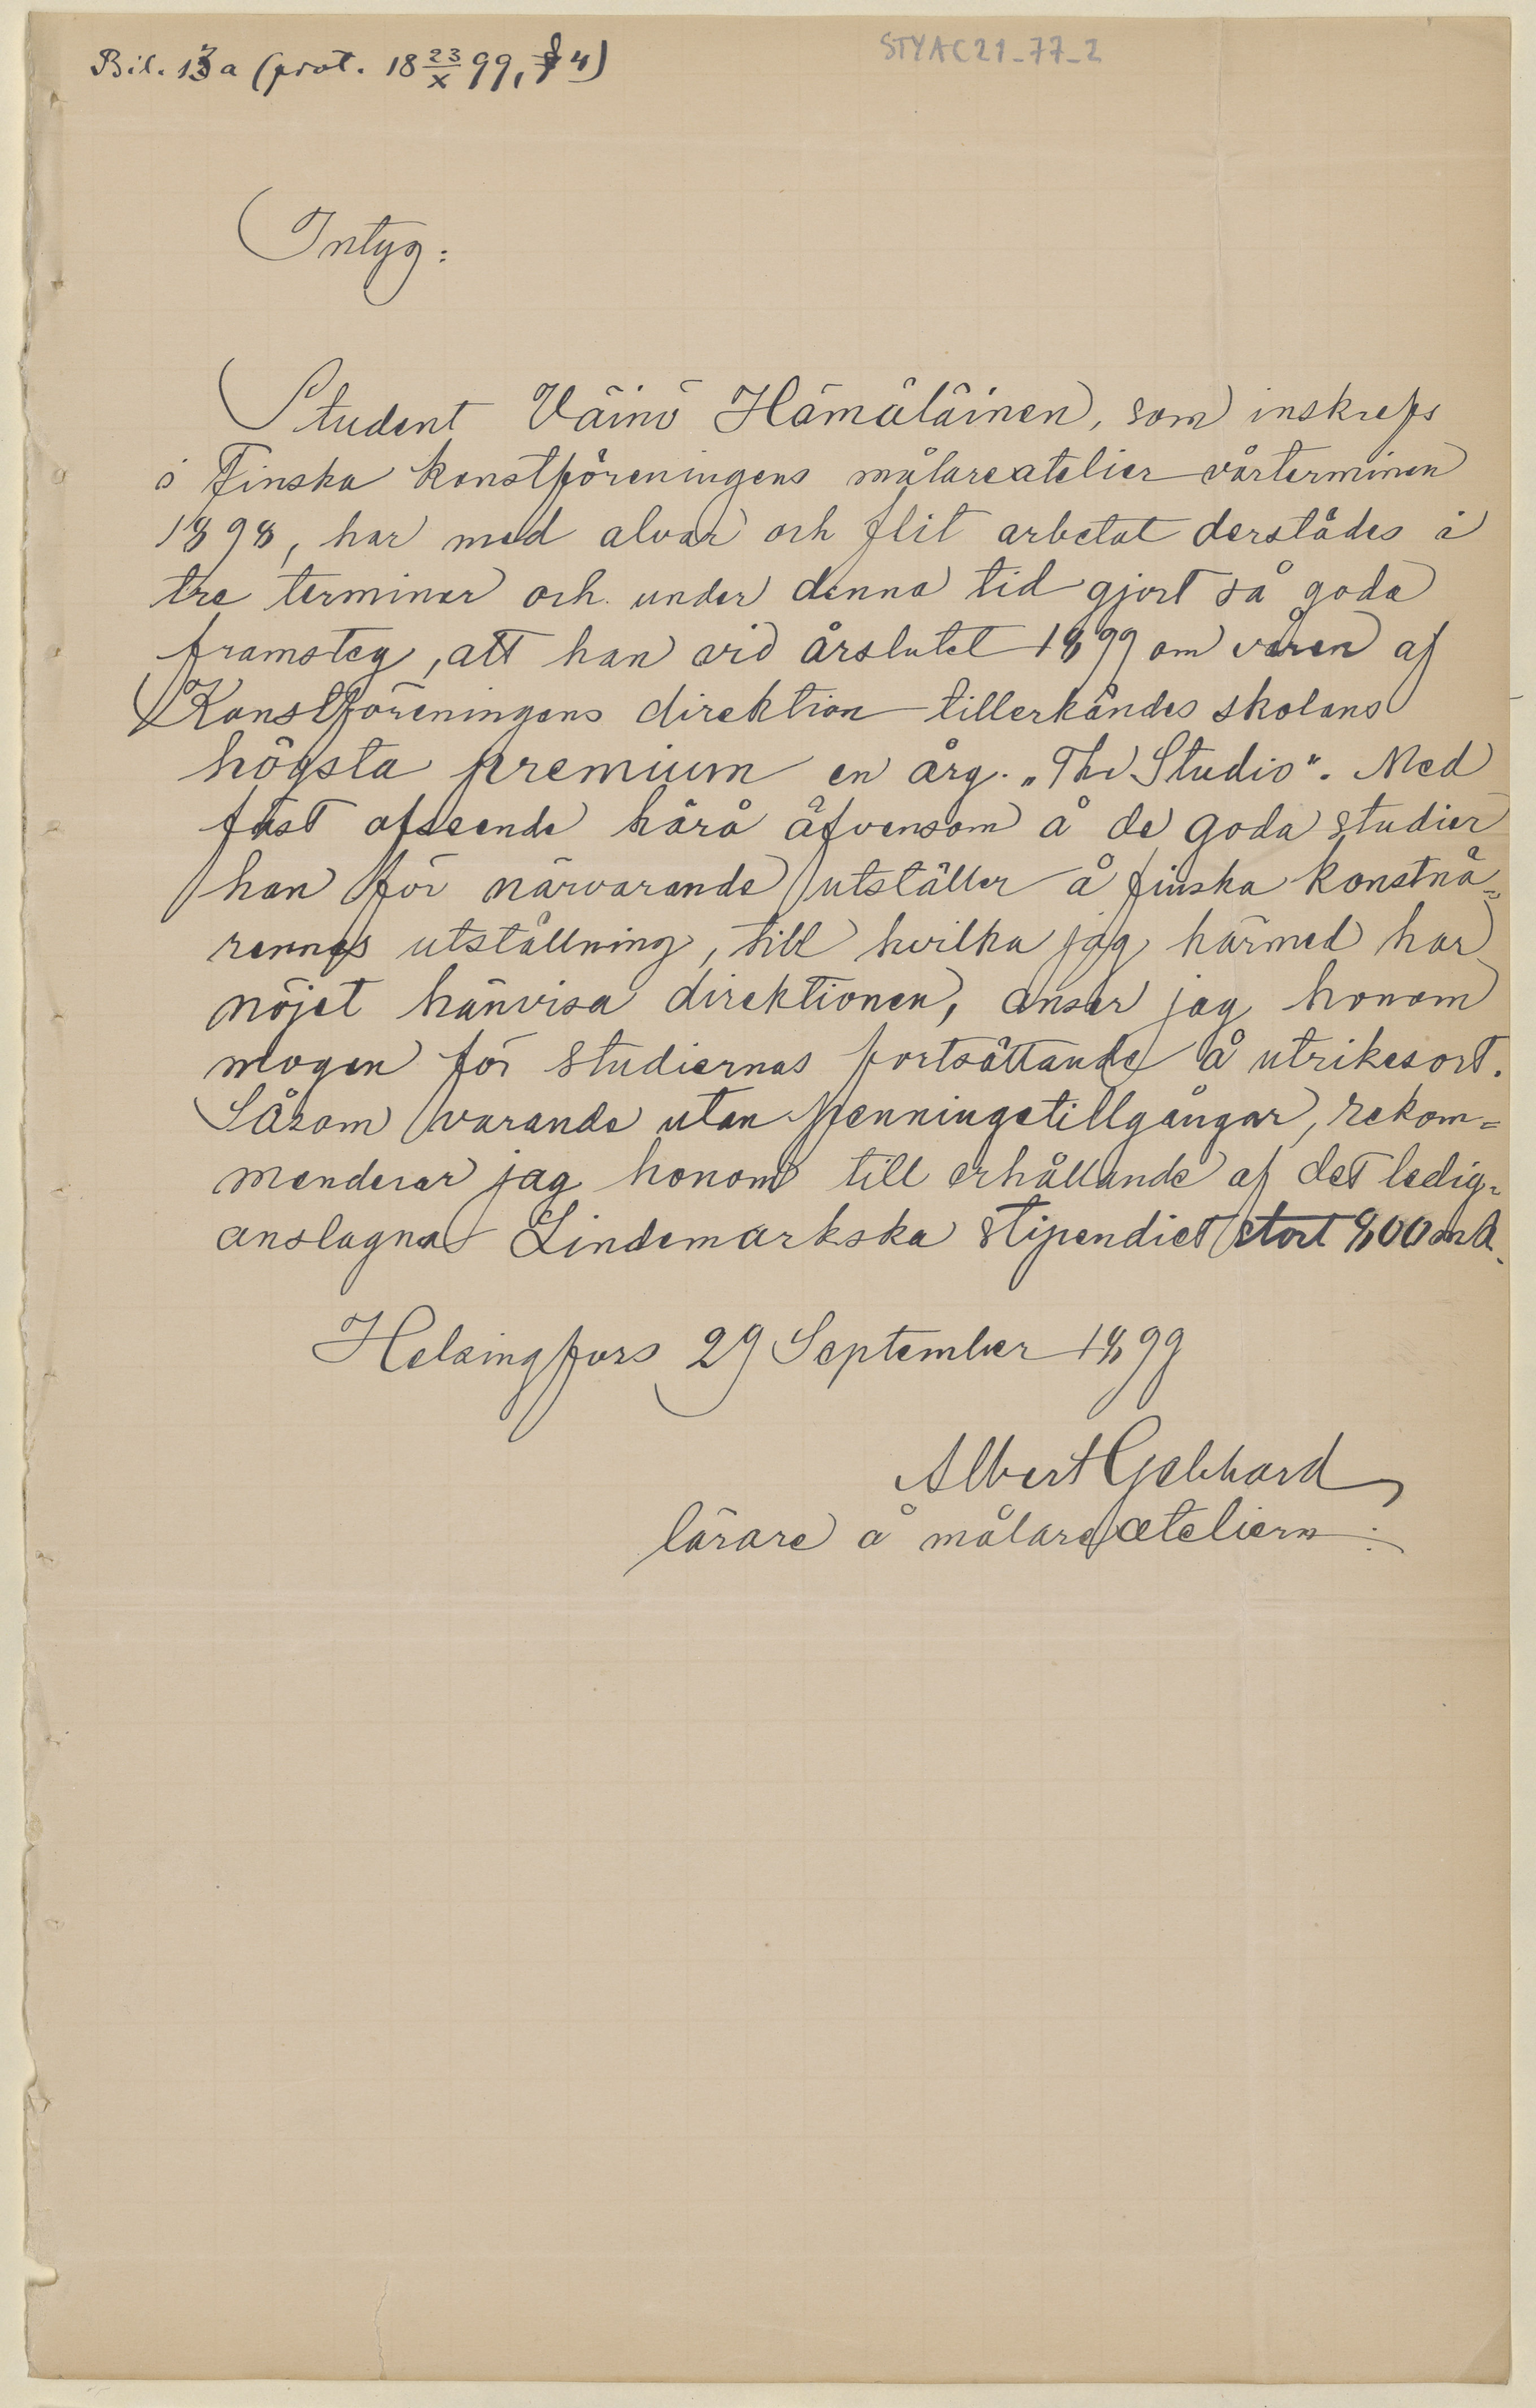 Bil. 13a (prot. 18 23/X 99, § 4)
STYAC21_77_2
Intyg:
Student Väinö Hämäläinen, som inskrefs
i Finska konstföreningens målareatelier vårterminen
1898, har med alvar och flit arbetat derstädes i
tre terminer och under denna tid gjort så goda
framsteg, att han vid årslutet 1899 om våren af
Konstföreningens direktion tillerkändes skolans
högsta premium en årg. „The Studio". Med
fäst afseende härå äfvensom å de goda studier
han för närvarande utställer å finska konstnä=
rernas utställning, till hvilka jag härmed har
nöjet hänvisa direktionen, anser jag honom
mogen för studiernas fortsättande å utrikesort.
Såsom varande utan penningetillgångar, rekom=
menderar jag honom till erhållande af det ledig=
anslagna Lindemarkska stipendiet stort 800 mk.
Helsingfors 29 September 1899
Albert Gebhard
lärare å målareateliern.